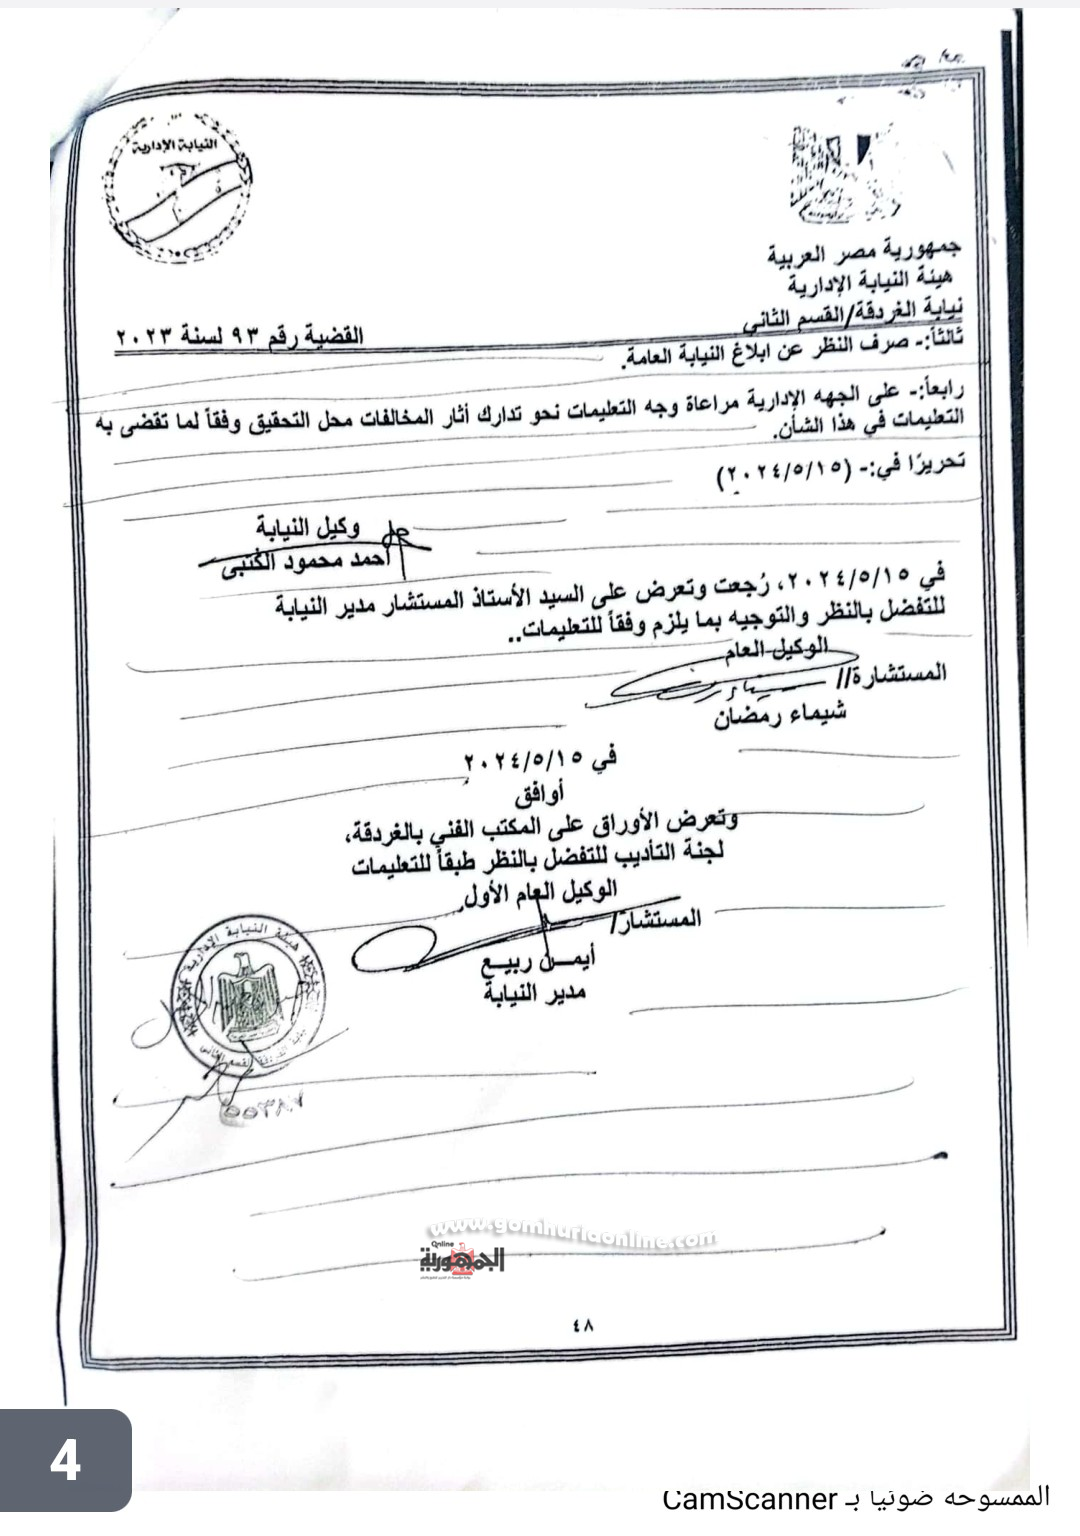 النيابة الإدارية
جمهورية مصر العربية
هيئة النيابة الإدارية
نيابة الغردقة/القسم الثاني
القضية رقم ٩٣ لسنة ٢٠٢٣
ثالثاً:- صرف النظر عن ابلاغ النيابة العامة.
رابعاً:- على الجهه الإدارية مراعاة وجه التعليمات نحو تدارك أثار المخالفات محل التحقيق وفقاً لما تقضى به
التعليمات في هذا الشأن.
تحريرًا في:- (٢٠٢٤/٥/١٥)
وكيل النيابة
أحمد محمود الكتبى
في ٢٠٢٤/٥/١٥، رُجعت وتعرض على السيد الأستاذ المستشار مدير النيابة
للتفضل بالنظر والتوجيه بما يلزم وفقاً للتعليمات..
الوكيل العام
المستشارة//
شيماء رمضان
في ٢٠٢٤/٥/١٥
أوافق
وتعرض الأوراق على المكتب الفني بالغردقة،
لجنة التأديب للتفضل بالنظر طبقاً للتعليمات
الوكيل العام الأول
المستشار/
أيمـن ربيـع
مدير النيابة
هيئة النيابة الإدارية
www.gomhuriaonline.com
Online
الجمهورية
٤٨
4
الممسوحة ضوئيا بـ CamScanner